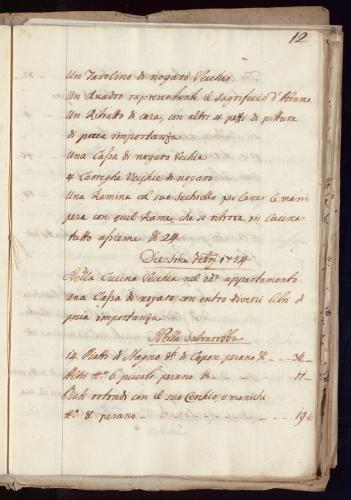 12
Un Tavolino di nogaro Vecchio
Un Quadro rapresentante il sagrificio d'Abramo
Un Ritratto di casa, con altri 4 pezzi di pittura
di poca importanza
Una Cassa di nogaro Vechia
4 Carreghe Vecchie di nogaro
Una Ramina col suo Secchiello per lavar le mani
pesa con quel Rame, che si ritrova in Cucina
tutto assieme lb 24
Die Febr. 1754
Nella Cucina Vecchia nel appartamento
una Cassa di nogaro, con entro diversi libri di
poca importanza
Nella Salvarobba
14 Piatti di Stagno di Capone pesano lb 36
Altri n.o 6 piccoli pesano lb 11
Piati rotondi con il suo Cerchio e manichi
n.o 8 pesano 19